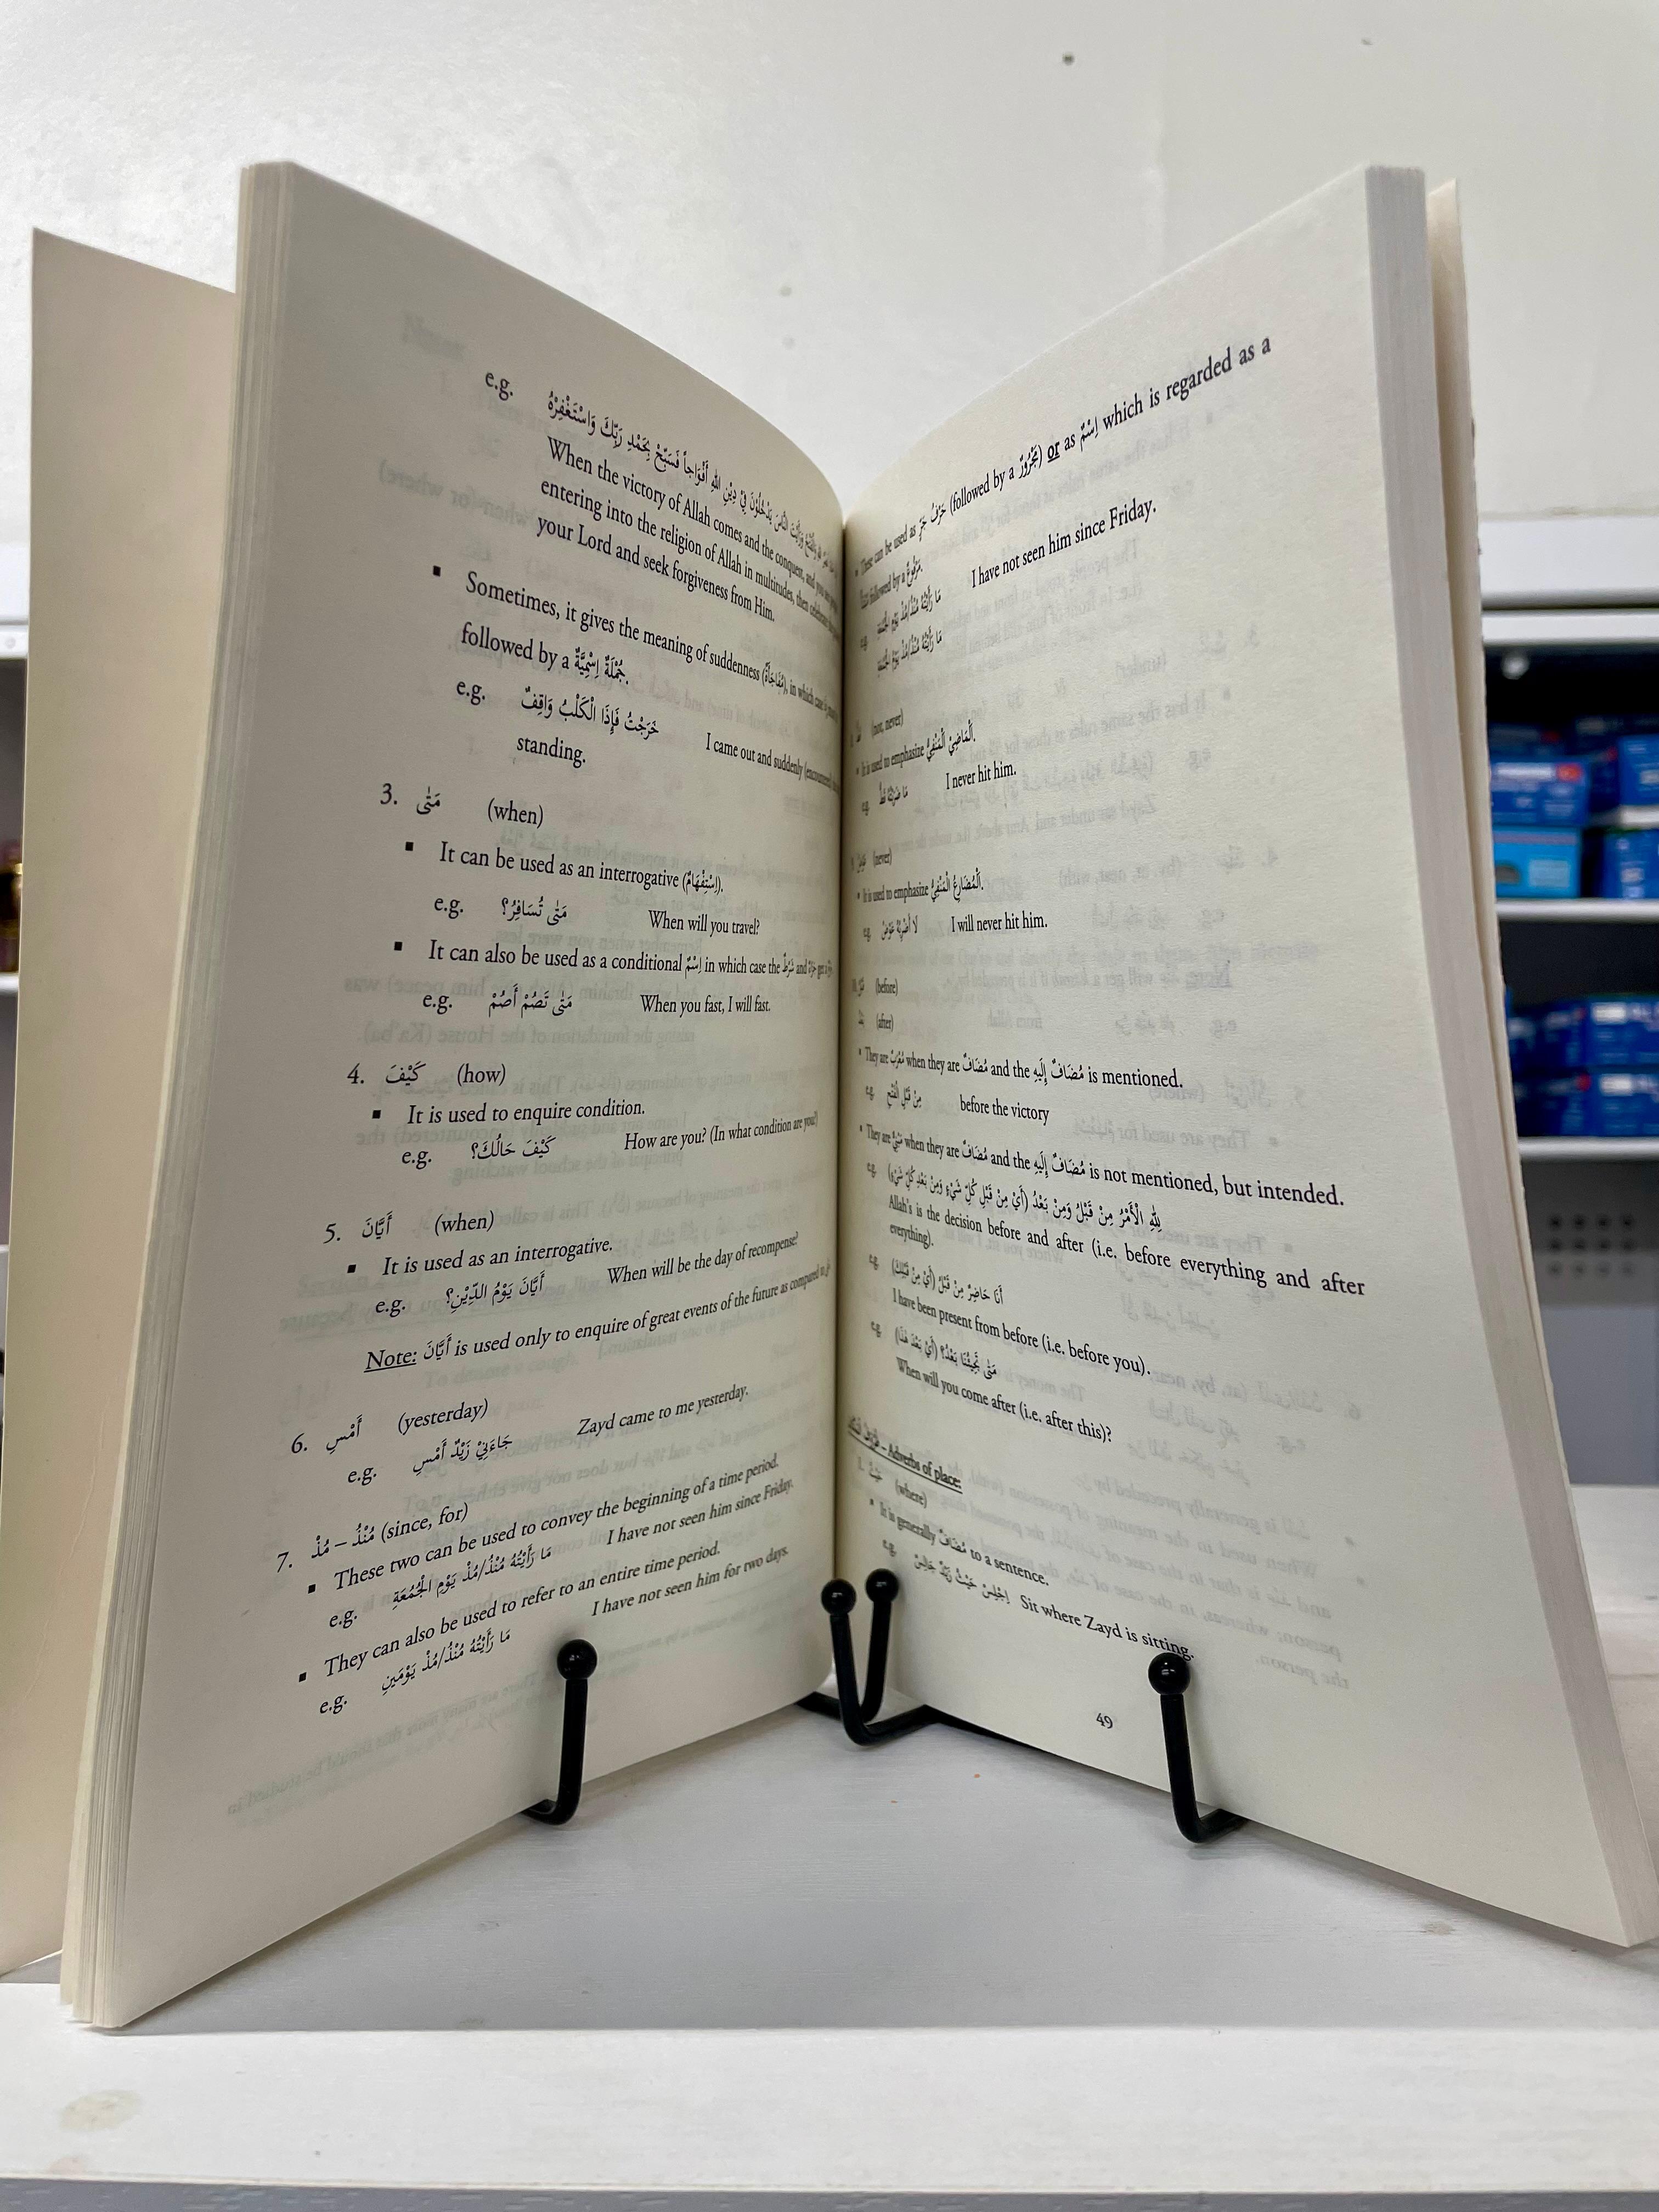 e.g. وَالْفَتْحُ وَرَأَيْتَ النَّاسَ يَدْخُلُوْنَ فِيْ دِيْنِ اللهِ أَفْوَاجاً فَسَبِّحْ بِحَمْدِ رَبِّكَ وَاسْتَغْفِرْهُ
When the victory of Allah comes and the conquest, and you
entering into the religion of Allah in multitudes, then celebrate
your Lord and seek forgiveness from Him.
▪ Sometimes, it gives the meaning of suddenness (مُفَاجَأَةٌ), in which case
followed by a جُمْلَةٌ إِسْمِيَّةٌ.
e.g. خَرَجْتُ فَإِذَا الْكَلْبُ وَاقِفٌ I came out and suddenly (encountered)
standing.
3. مَتٰى (when)
▪ It can be used as an interrogative (إِسْتِفْهَامٌ).
e.g. مَتٰى تُسَافِرُ؟ When will you travel?
▪ It can also be used as a conditional إِسْمٌ in which case the شَرْطٌ and
e.g. مَتٰى تَصُمْ أَصُمْ When you fast, I will fast.
4. كَيْفَ (how)
▪ It is used to enquire condition.
e.g. كَيْفَ حَالُكَ؟ How are you? (In what condition are you?)
5. أَيَّانَ (when)
▪ It is used as an interrogative.
e.g. أَيَّانَ يَوْمُ الدِّيْنِ؟ When will be the day of recompense?
Note: أَيَّانَ is used only to enquire of great events of the future as compared to
6. أَمْسِ (yesterday)
e.g. جَاءَنِيْ زَيْدٌ أَمْسِ Zayd came to me yesterday.
7. مُنْذُ – مُذْ (since, for)
▪ These two can be used to convey the beginning of a time period.
e.g. مَا رَأَيْتُهُ مُنْذُ/مُذْ يَوْمِ الْجُمُعَةِ I have not seen him since Friday.
▪ They can also be used to refer to an entire time period.
e.g. مَا رَأَيْتُهُ مُنْذُ/مُذْ يَوْمَيْنِ I have not seen him for two days.
▪ These can be used as حَرْفُ جَرٍّ (followed by a مَجْرُوْرٌ) or as إِسْمٌ which is regarded as a
followed by a مَرْفُوْعٌ.
e.g. مَا رَأَيْتُهُ مُنْذُ/مُذْ يَوْمِ الْجُمُعَةِ I have not seen him since Friday.
مَا رَأَيْتُهُ مُنْذُ/مُذْ يَوْمُ الْجُمُعَةِ
(not, never)
▪ It is used to emphasize الْمَاضِيْ الْمَنْفِيُّ.
e.g. مَا ضَرَبْتُهُ قَطُّ I never hit him.
(never)
▪ It is used to emphasize الْمُضَارِعُ الْمَنْفِيُّ.
e.g. لَا أَضْرِبُهُ عَوْضُ I will never hit him.
(before)
(after)
▪ They are مُعْرَبٌ when they are مُضَافٌ and the مُضَافٌ إِلَيْهِ is mentioned.
e.g. مِنْ قَبْلِ الْفَتْحِ before the victory
▪ They are مَبْنِيٌّ when they are مُضَافٌ and the مُضَافٌ إِلَيْهِ is not mentioned, but intended.
e.g. لِلّٰهِ الْأَمْرُ مِنْ قَبْلُ وَمِنْ بَعْدُ (أَيْ مِنْ قَبْلِ كُلِّ شَيْءٍ وَمِنْ بَعْدِ كُلِّ شَيْءٍ)
Allah's is the decision before and after (i.e. before everything and after
everything).
e.g. أَنَا حَاضِرٌ مِنْ قَبْلُ (أَيْ مِنْ قَبْلِكَ)
I have been present from before (i.e. before you).
e.g. مَتٰى تَجِيْئُنَا بَعْدُ؟ (أَيْ بَعْدَ هٰذَا)
When will you come after (i.e. after this)?
– Adverbs of place:
1. حَيْثُ (where)
▪ It is generally مُضَافٌ to a sentence.
e.g. إِجْلِسْ حَيْثُ زَيْدٌ جَالِسٌ Sit where Zayd is sitting.
49